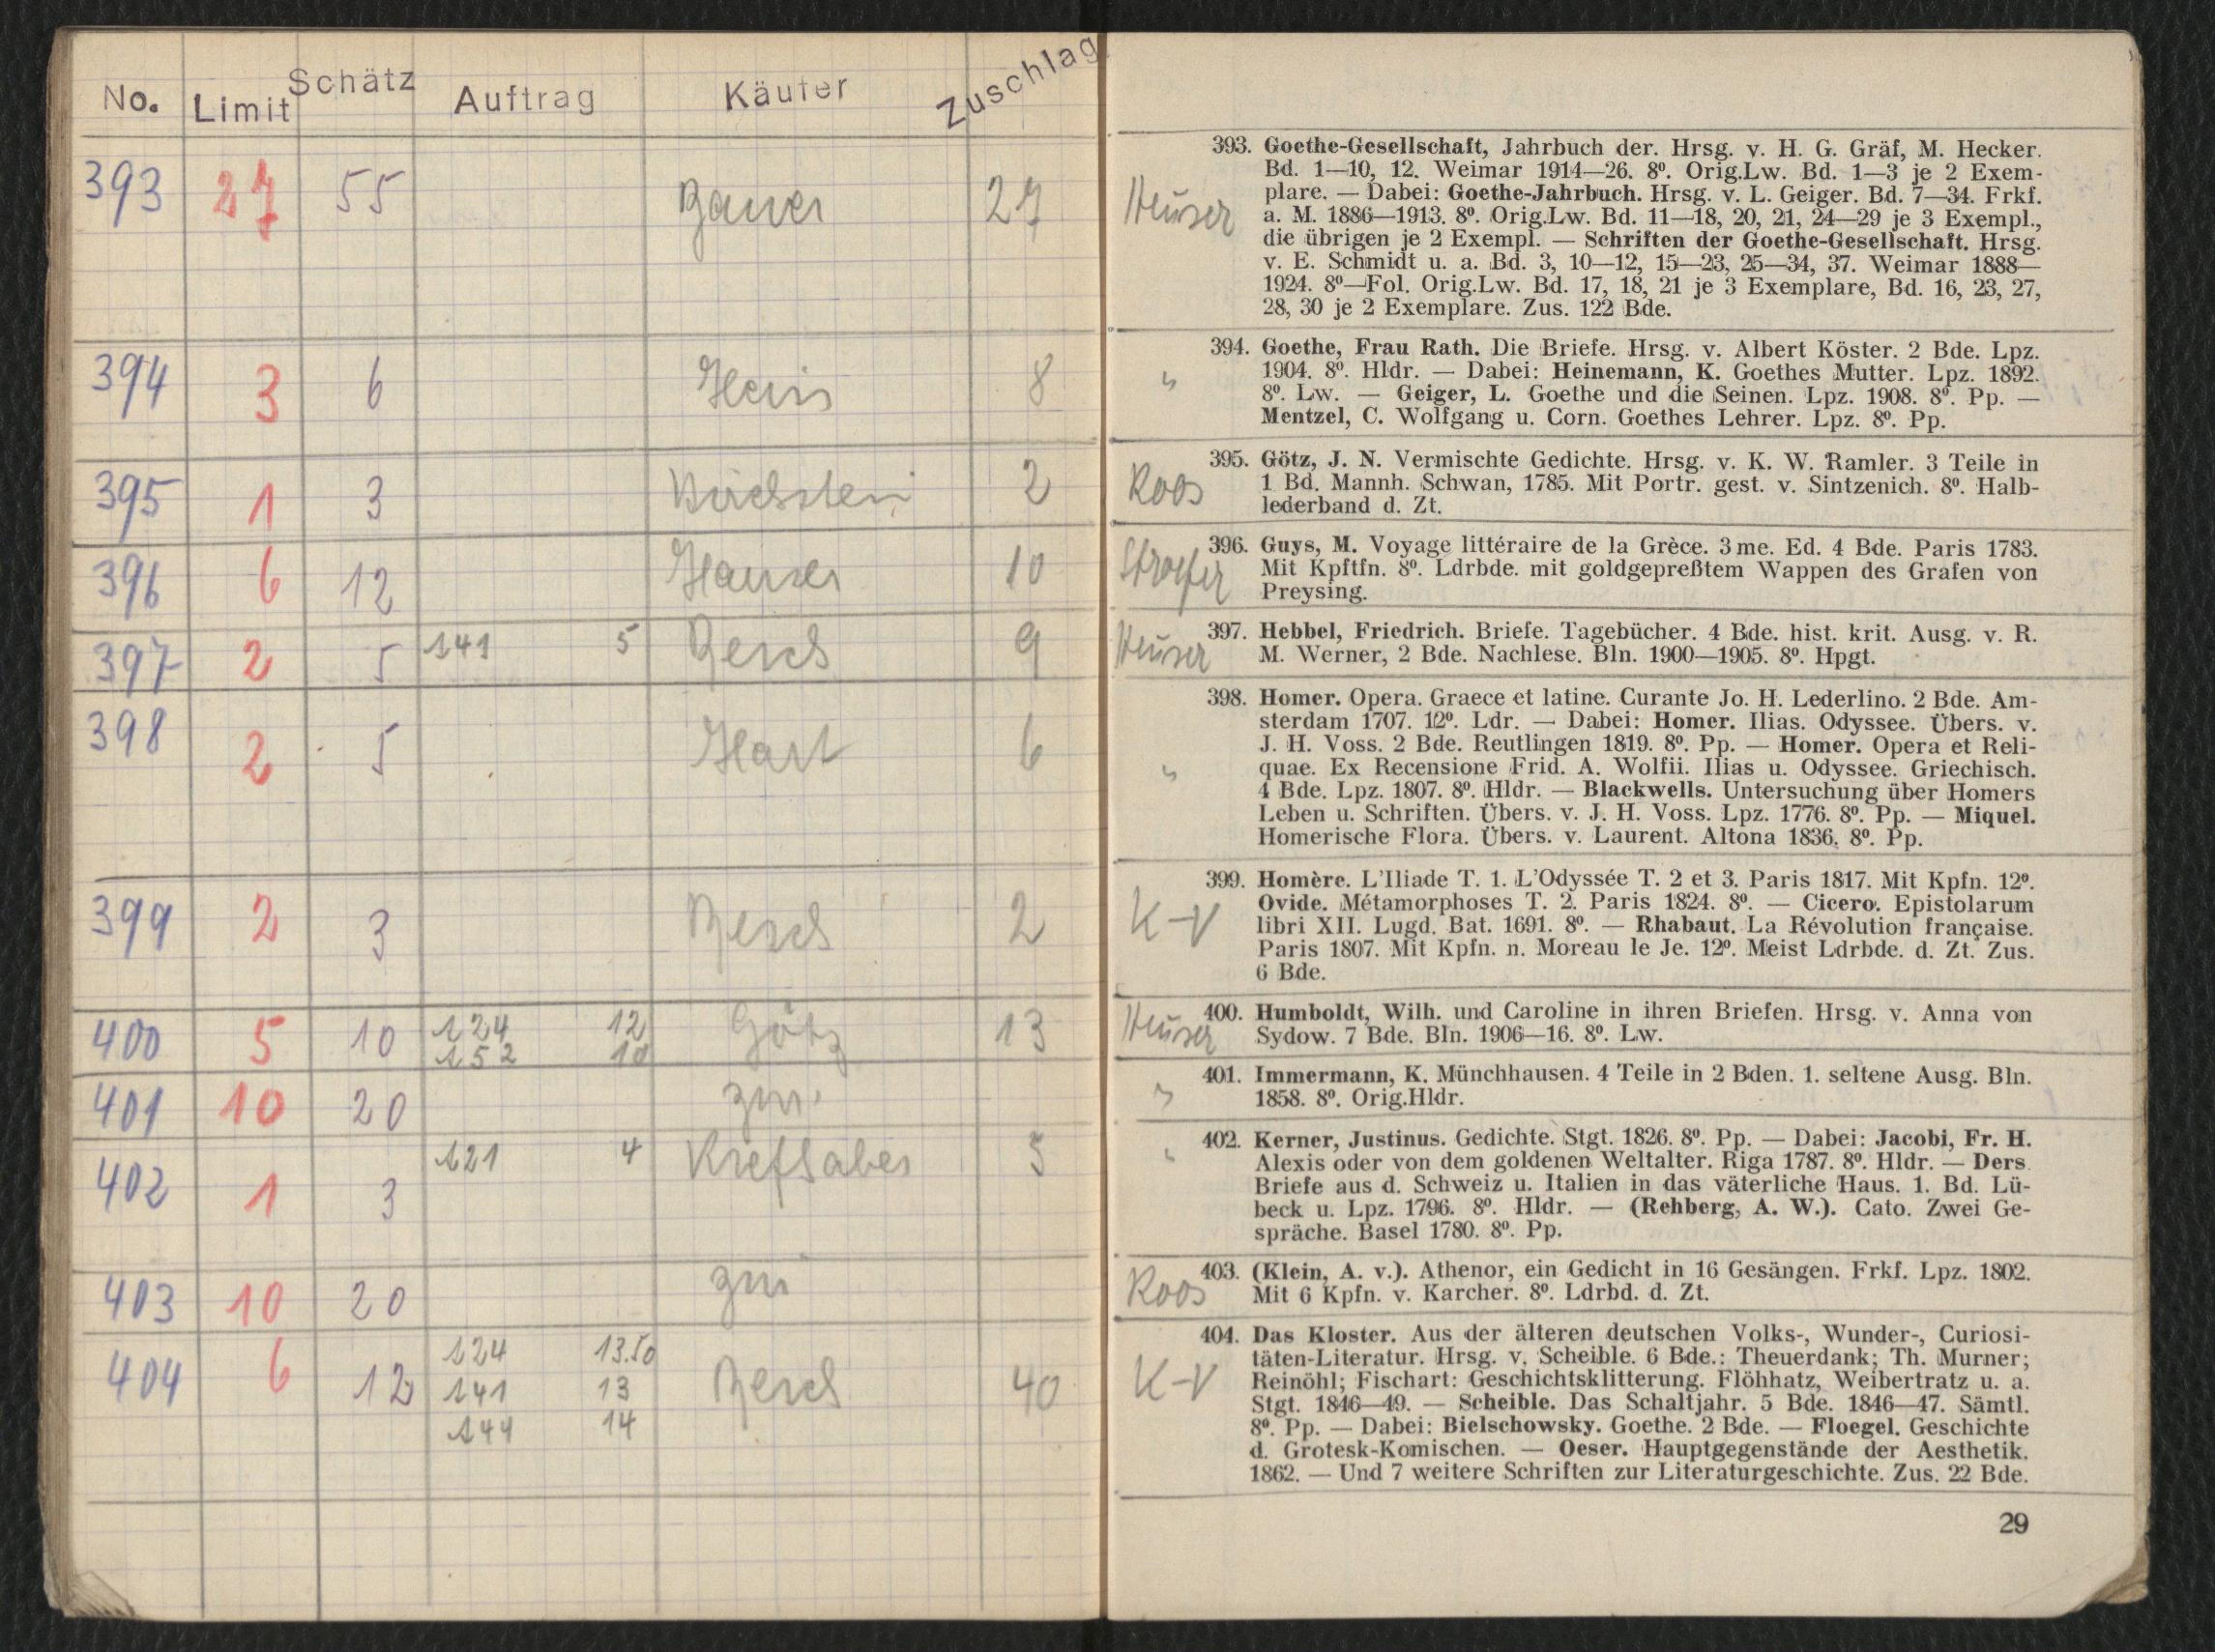 No. Limit Schätz Auftrag Käufer Zuschlag
393 27 55 Bauer 27
394 3 6 Heiss 8
395 1 3 2
396 6 12 Hauser 10
397 2 5 141 5 Gersch 9
398 2 5 Hart 6
399 2 3 Gersch 2
400 5 10 124 12 Götz 13
152 10
401 10 20 zur.
402 1 3 121 4 5
403 10 20 zur
404 6 12 124 13.50 Gersch 40
141 13
144 14
Heuser
393. Goethe-Gesellschaft, Jahrbuch der. Hrsg. v. H. G. Gräf, M. Hecker.
Bd. 1—10, 12. Weimar 1914—26. 8º. Orig.Lw. Bd. 1—3 je 2 Exem-
plare. — Dabei: Goethe-Jahrbuch. Hrsg. v. L. Geiger. Bd. 7—34. Frkf.
a. M. 1886—1913. 8º. Orig.Lw. Bd. 11—18, 20, 21, 24—29 je 3 Exempl.,
die übrigen je 2 Exempl. — Schriften der Goethe-Gesellschaft. Hrsg.
v. E. Schmidt u. a. Bd. 3, 10—12, 15—23, 25—34, 37. Weimar 1888—
1924. 8º—Fol. Orig.Lw. Bd. 17, 18, 21 je 3 Exemplare, Bd. 16, 23, 27,
28, 30 je 2 Exemplare. Zus. 122 Bde.
"
394. Goethe, Frau Rath. Die Briefe. Hrsg. v. Albert Köster. 2 Bde. Lpz.
1904. 8º. Hldr. — Dabei: Heinemann, K. Goethes Mutter. Lpz. 1892.
8º. Lw. — Geiger, L. Goethe und die Seinen. Lpz. 1908. 8º. Pp. —
Mentzel, C. Wolfgang u. Corn. Goethes Lehrer. Lpz. 8º. Pp.
Roos
395. Götz, J. N. Vermischte Gedichte. Hrsg. v. K. W. Ramler. 3 Teile in
1 Bd. Mannh. Schwan, 1785. Mit Portr. gest. v. Sintzenich. 8º. Halb-
lederband d. Zt.
Stroefer
396. Guys, M. Voyage littéraire de la Grèce. 3me. Ed. 4 Bde. Paris 1783.
Mit Kpftfn. 8º. Ldrbde. mit goldgepreßtem Wappen des Grafen von
Preysing.
Heuser
397. Hebbel, Friedrich. Briefe. Tagebücher. 4 Bde. hist. krit. Ausg. v. R.
M. Werner, 2 Bde. Nachlese. Bln. 1900—1905. 8º. Hpgt.
"
398. Homer. Opera. Graece et latine. Curante Jo. H. Lederlino. 2 Bde. Am-
sterdam 1707. 12º. Ldr. — Dabei: Homer. Ilias. Odyssee. Übers. v.
J. H. Voss. 2 Bde. Reutlingen 1819. 8º. Pp. — Homer. Opera et Reli-
quae. Ex Recensione Frid. A. Wolfii. Ilias u. Odyssee. Griechisch.
4 Bde. Lpz. 1807. 8º. Hldr. — Blackwells. Untersuchung über Homers
Leben u. Schriften. Übers. v. J. H. Voss. Lpz. 1776. 8º. Pp. — Miquel.
Homerische Flora. Übers. v. Laurent. Altona 1836. 8º. Pp.
K-V
399. Homère. L'Iliade T. 1. L'Odyssée T. 2 et 3. Paris 1817. Mit Kpfn. 12º.
Ovide. Métamorphoses T. 2. Paris 1824. 8º. — Cicero. Epistolarum
libri XII. Lugd. Bat. 1691. 8º. — Rhabaut. La Révolution française.
Paris 1807. Mit Kpfn. n. Moreau le Je. 12º. Meist Ldrbde. d. Zt. Zus.
6 Bde.
Heuser
400. Humboldt, Wilh. und Caroline in ihren Briefen. Hrsg. v. Anna von
Sydow. 7 Bde. Bln. 1906—16. 8º. Lw.
"
401. Immermann, K. Münchhausen. 4 Teile in 2 Bden. 1. seltene Ausg. Bln.
1858. 8º. Orig.Hldr.
"
402. Kerner, Justinus. Gedichte. Stgt. 1826. 8º. Pp. — Dabei: Jacobi, Fr. H.
Alexis oder von dem goldenen Weltalter. Riga 1787. 8º. Hldr. — Ders.
Briefe aus d. Schweiz u. Italien in das väterliche Haus. 1. Bd. Lü-
beck u. Lpz. 1796. 8º. Hldr. — (Rehberg, A. W.). Cato. Zwei Ge-
spräche. Basel 1780. 8º. Pp.
Roos
403. (Klein, A. v.). Athenor, ein Gedicht in 16 Gesängen. Frkf. Lpz. 1802.
Mit 6 Kpfn. v. Karcher. 8º. Ldrbd. d. Zt.
K-V
404. Das Kloster. Aus der älteren deutschen Volks-, Wunder-, Curiosi-
täten-Literatur. Hrsg. v. Scheible. 6 Bde.: Theuerdank; Th. Murner;
Reinöhl; Fischart: Geschichtsklitterung. Flöhhatz, Weibertratz u. a.
Stgt. 1846—49. — Scheible. Das Schaltjahr. 5 Bde. 1846—47. Sämtl.
8º. Pp. — Dabei: Bielschowsky. Goethe. 2 Bde. — Floegel. Geschichte
d. Grotesk-Komischen. — Oeser. Hauptgegenstände der Aesthetik.
1862. — Und 7 weitere Schriften zur Literaturgeschichte. Zus. 22 Bde.
29